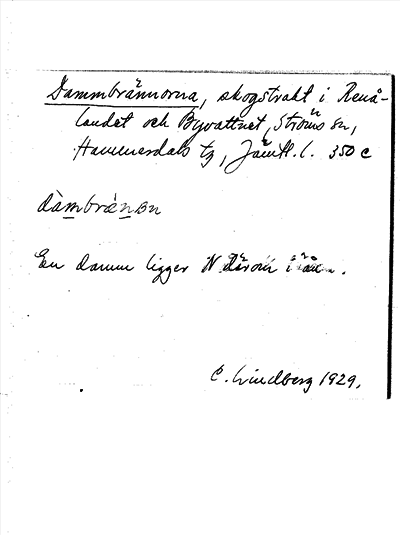 Dammbrännorna, skogstrakt i Renå-
landet och Byvattnet, Ströms sn,
Hammerdals tg, Jämtl. l. 350 c
dàmbrǽnɞn
En damm ligger N därom i ån.
C. Lindberg 1929.